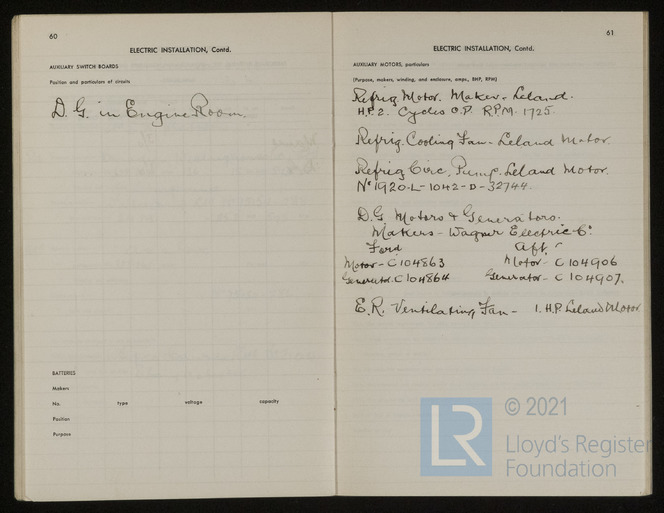 60
ELECTRIC INSTALLATION, Contd.
AUXILIARY SWITCH BOARDS
Position and particulars of circuits
D.G. in Engine Room.
BATTERIES
Makers
No. type voltage capacity
Position
Purpose
61
ELECTRIC INSTALLATION, Contd.
AUXILIARY MOTORS, particulars
(Purpose, makers, winding, and enclosure, amps, BHP, RPM)
Refrig Motor. Maker - Leland.
H.P. 2. Cycles R.P.M. 1725.
Refrig. Cooling Fan - Leland Motor.
Refrig Circ. Pump. Leland Motor.
No 1920-L-1042-D-32744.
D.G Motors & Generators.
Makers - Wagner Electric Co.
Ford Aft
Motor - C104863 Motor - C104906
Generator. C104864 Generator - C104907.
E.R. Ventilating Fan - 1. H.P. Leland Motor
LR
© 2021
Lloyd's Register
Foundation